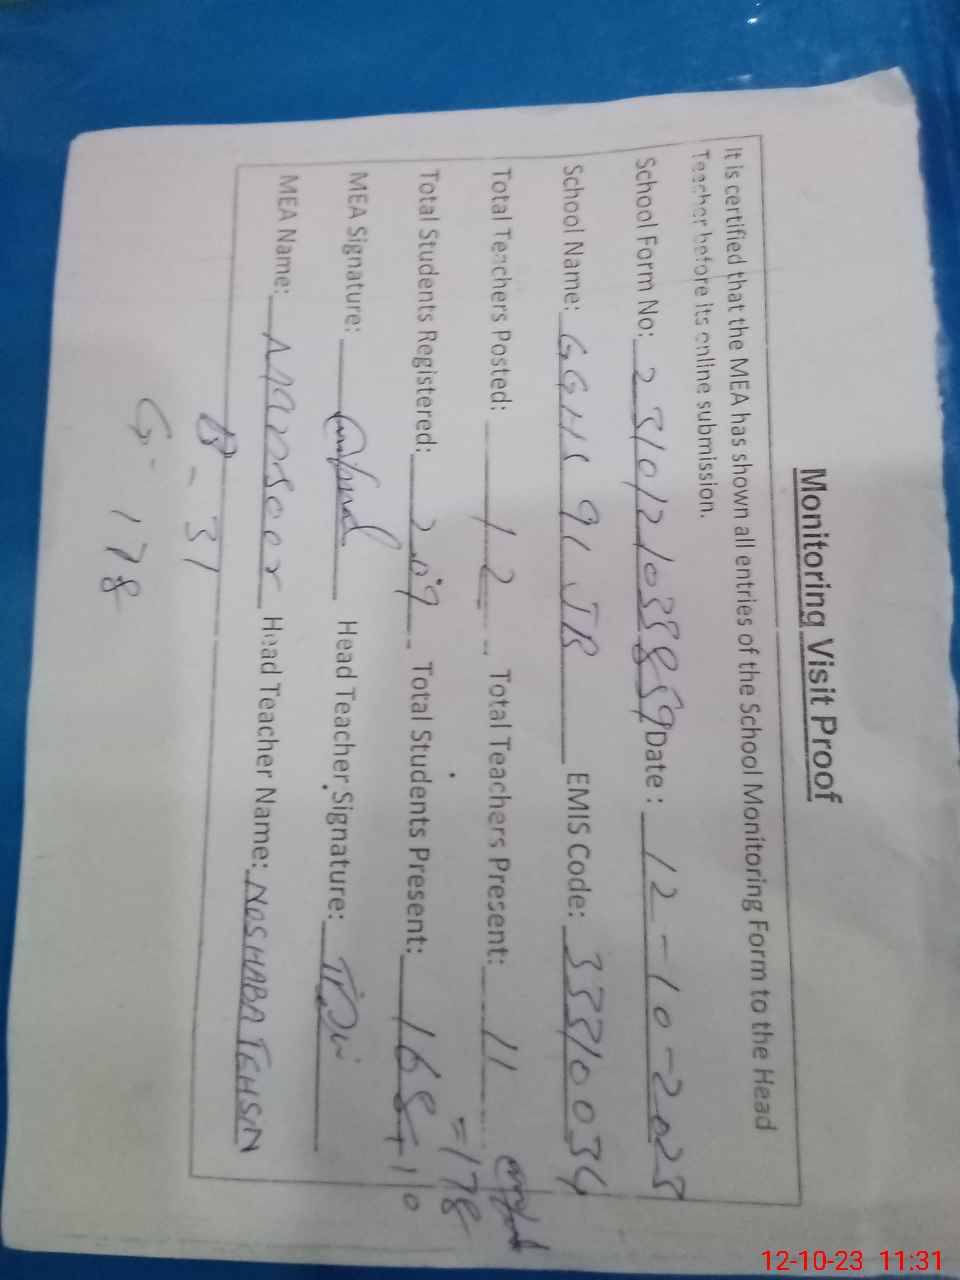 Monitoring Visit Proof
It is certified that the MEA has shown all entries of the School Monitoring Form to the Head
Teacher before its online submission.
School Form No: Date: 12-10-2023
School Name: GGHS 91 JB EMIS Code: 33310034
Total Teachers Posted: 12 Total Teachers Present: 11
=178
Total Students Registered: 209 Total Students Present: 168+10
MEA Signature: Head Teacher Signature:
MEA Name: Mansoor Head Teacher Name: NOSHABA TEHSIN
B - 31
G - 178
12-10-23 11:31